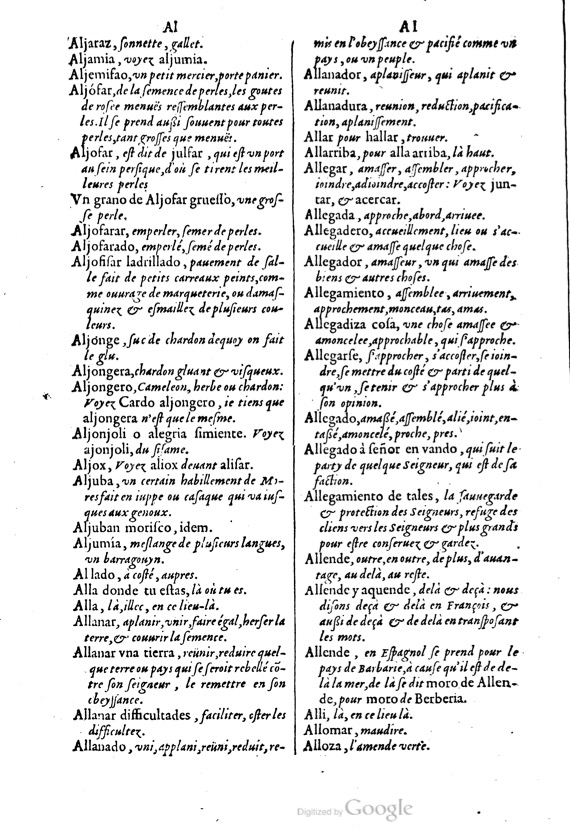 Al
Aljaraz, ſonnette, gallet.
Aljamia, voyez aljumia.
Aljemifao, vn petit mercier, porte panier.
Aljófar, de la ſemence de perles, les goutes
de roſee menuës reſſemblantes aux per-
les. Il ſe prend außi ſouuent pour toutes
perles, tant groſſes que menuës.
Aljofar, eſt dit de julfar, qui eſt vn port
au ſein perſique, d'où ſe tirent les meil-
leures perles
Vn grano de Aljofar grueſſo, vne groſ-
ſe perle.
Aljofarar, emperler, ſemer de perles.
Aljofarado, emperlé, ſemé de perles.
Aljofiſar ladrillado, pauement de ſal-
le fait de petits carreaux peints, com-
me ouurage de marqueterie, ou damaſ-
quinez & eſmaillez de pluſieurs cou-
leurs.
Aljonge, ſuc de chardon dequoy on fait
le glu.
Aljongera, chardon gluant & viſqueux.
Aljongero, Cameleon, herbe ou chardon:
Voyez Cardo aljongero, ie tiens que
aljongera n'eſt que le meſme.
Aljonjoli o alegria ſimiente. Voyez
ajonjoli, du ſiſame.
Aljox, Voyez aliox deuant aliſar.
Aljuba, vn certain habillement de Mo-
res fait en iuppe ou caſaque qui va iuſ-
ques aux genoux.
Aljuban moriſco, idem.
Aljumia, meſlange de pluſieurs langues,
vn barragouyn.
Al lado, à coſté, aupres.
Alla donde tu eſtas, là où tu es.
Alla, là, illec, en ce lieu-là.
Allanar, aplanir, vnir, faire égal, herſer la
terre, & couurir la ſemence.
Allanar vna tierra, reünir, reduire quel-
que terre ou pays qui ſe ſeroit rebellé cõ-
tre ſon ſeigneur, le remettre en ſon
obeyſſance.
Allanar difficultades, faciliter, oſter les
difficultez.
Allanado, vni, applani, reüni, reduit, re-
Al
mis en l'obeyſſance & pacifié comme vn
pays, ou vn peuple.
Allanador, aplaniſſeur, qui aplanit &
reunit.
Allanadura, reunion, reduction, pacifica-
tion, aplaniſſement.
Allar pour hallar, trouuer.
Allarriba, pour alla arriba, là haut.
Allegar, amaſſer, aſſembler, approcher,
ioindre, adioindre, accoſter: Voyez jun-
tar, & acercar.
Allegada, approche, abord, arriuee.
Allegadero, accueillement, lieu ou s'ac-
cueille & amaſſe quelque choſe.
Allegador, amaſſeur, vn qui amaſſe des
biens & autres choſes.
Allegamiento, aſſemblee, arriuement,
approchement, monceau, tas, amas.
Allegadiza coſa, vne choſe amaſſee &
amoncelee, approchable, qui ſ'approche.
Allegarſe, ſ'approcher, ſ'accoſter, ſe ioin-
dre, ſe mettre du coſté & parti de quel-
qu'vn, ſe tenir & s'approcher plus à
ſon opinion.
Allegado, amaßé, aſſemblé, alié, ioint, en-
taßé, amoncelé, proche, pres.
Allegado à ſeñor en vando, qui ſuit le
party de quelque Seigneur, qui eſt de ſa
faction.
Allegamiento de tales, la ſauuegarde
& protection des Seigneurs, refuge des
cliens vers les Seigneurs & plus grands
pour eſtre conſeruez & gardez.
Allende, outre, en outre, de plus, d'auan-
tage, au delà, au reſte.
Allende y aquende, delà & deçà: nous
diſons deçà & delà en François, &
außi de deçà & de delà en tranſpoſant
les mots.
Allende, en Eſpagnol ſe prend pour le
pays de Barbarie, à cauſe qu'il eſt de de-
là la mer, de là ſe dit moro de Allen-
de, pour moro de Berberia.
Alli, là, en ce lieu là.
Allomar, maudire.
Alloza, l'amende verte.
Digitized by Google